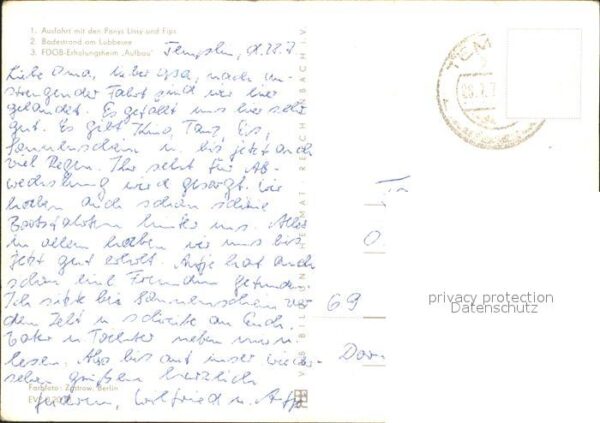 1. Ausfahrt mit den Ponys Lissy und Fips
2. Badestrand am Lübbesee
3. FDGB-Erholungsheim „Aufbau"
Templin, d. 28.7
Liebe Oma, lieber Opa, nach an-
strengender Fahrt sind wir hier
gelandet. Es gefällt uns hier sehr
gut. Es gibt Kino, Tanz, Eis,
Sonnenschein u. bis jetzt auch
viel Regen. Ihr seht für Ab-
wechslung wird gesorgt. Wir
haben auch schon schöne
Bootsfahrten hinter uns. Alles
in allem haben wir uns bis
jetzt gut erholt. Antje hat auch
schon eine Freundin gefunden.
Ich sitze bei Sonnenschein vor
dem Zelt u. schreibe an Euch.
Vater u. Tochter neben mir
lesen. Also bis auf unser Wieder-
sehen grüßen herzlich
Wilfried u. Antje
Farbfoto: Zastrow, Berlin
VEB BILD UND HEIMAT REICHENBACH I V
TEM
28.7.7
O.
69
Dor
privacy protection
Datenschutz